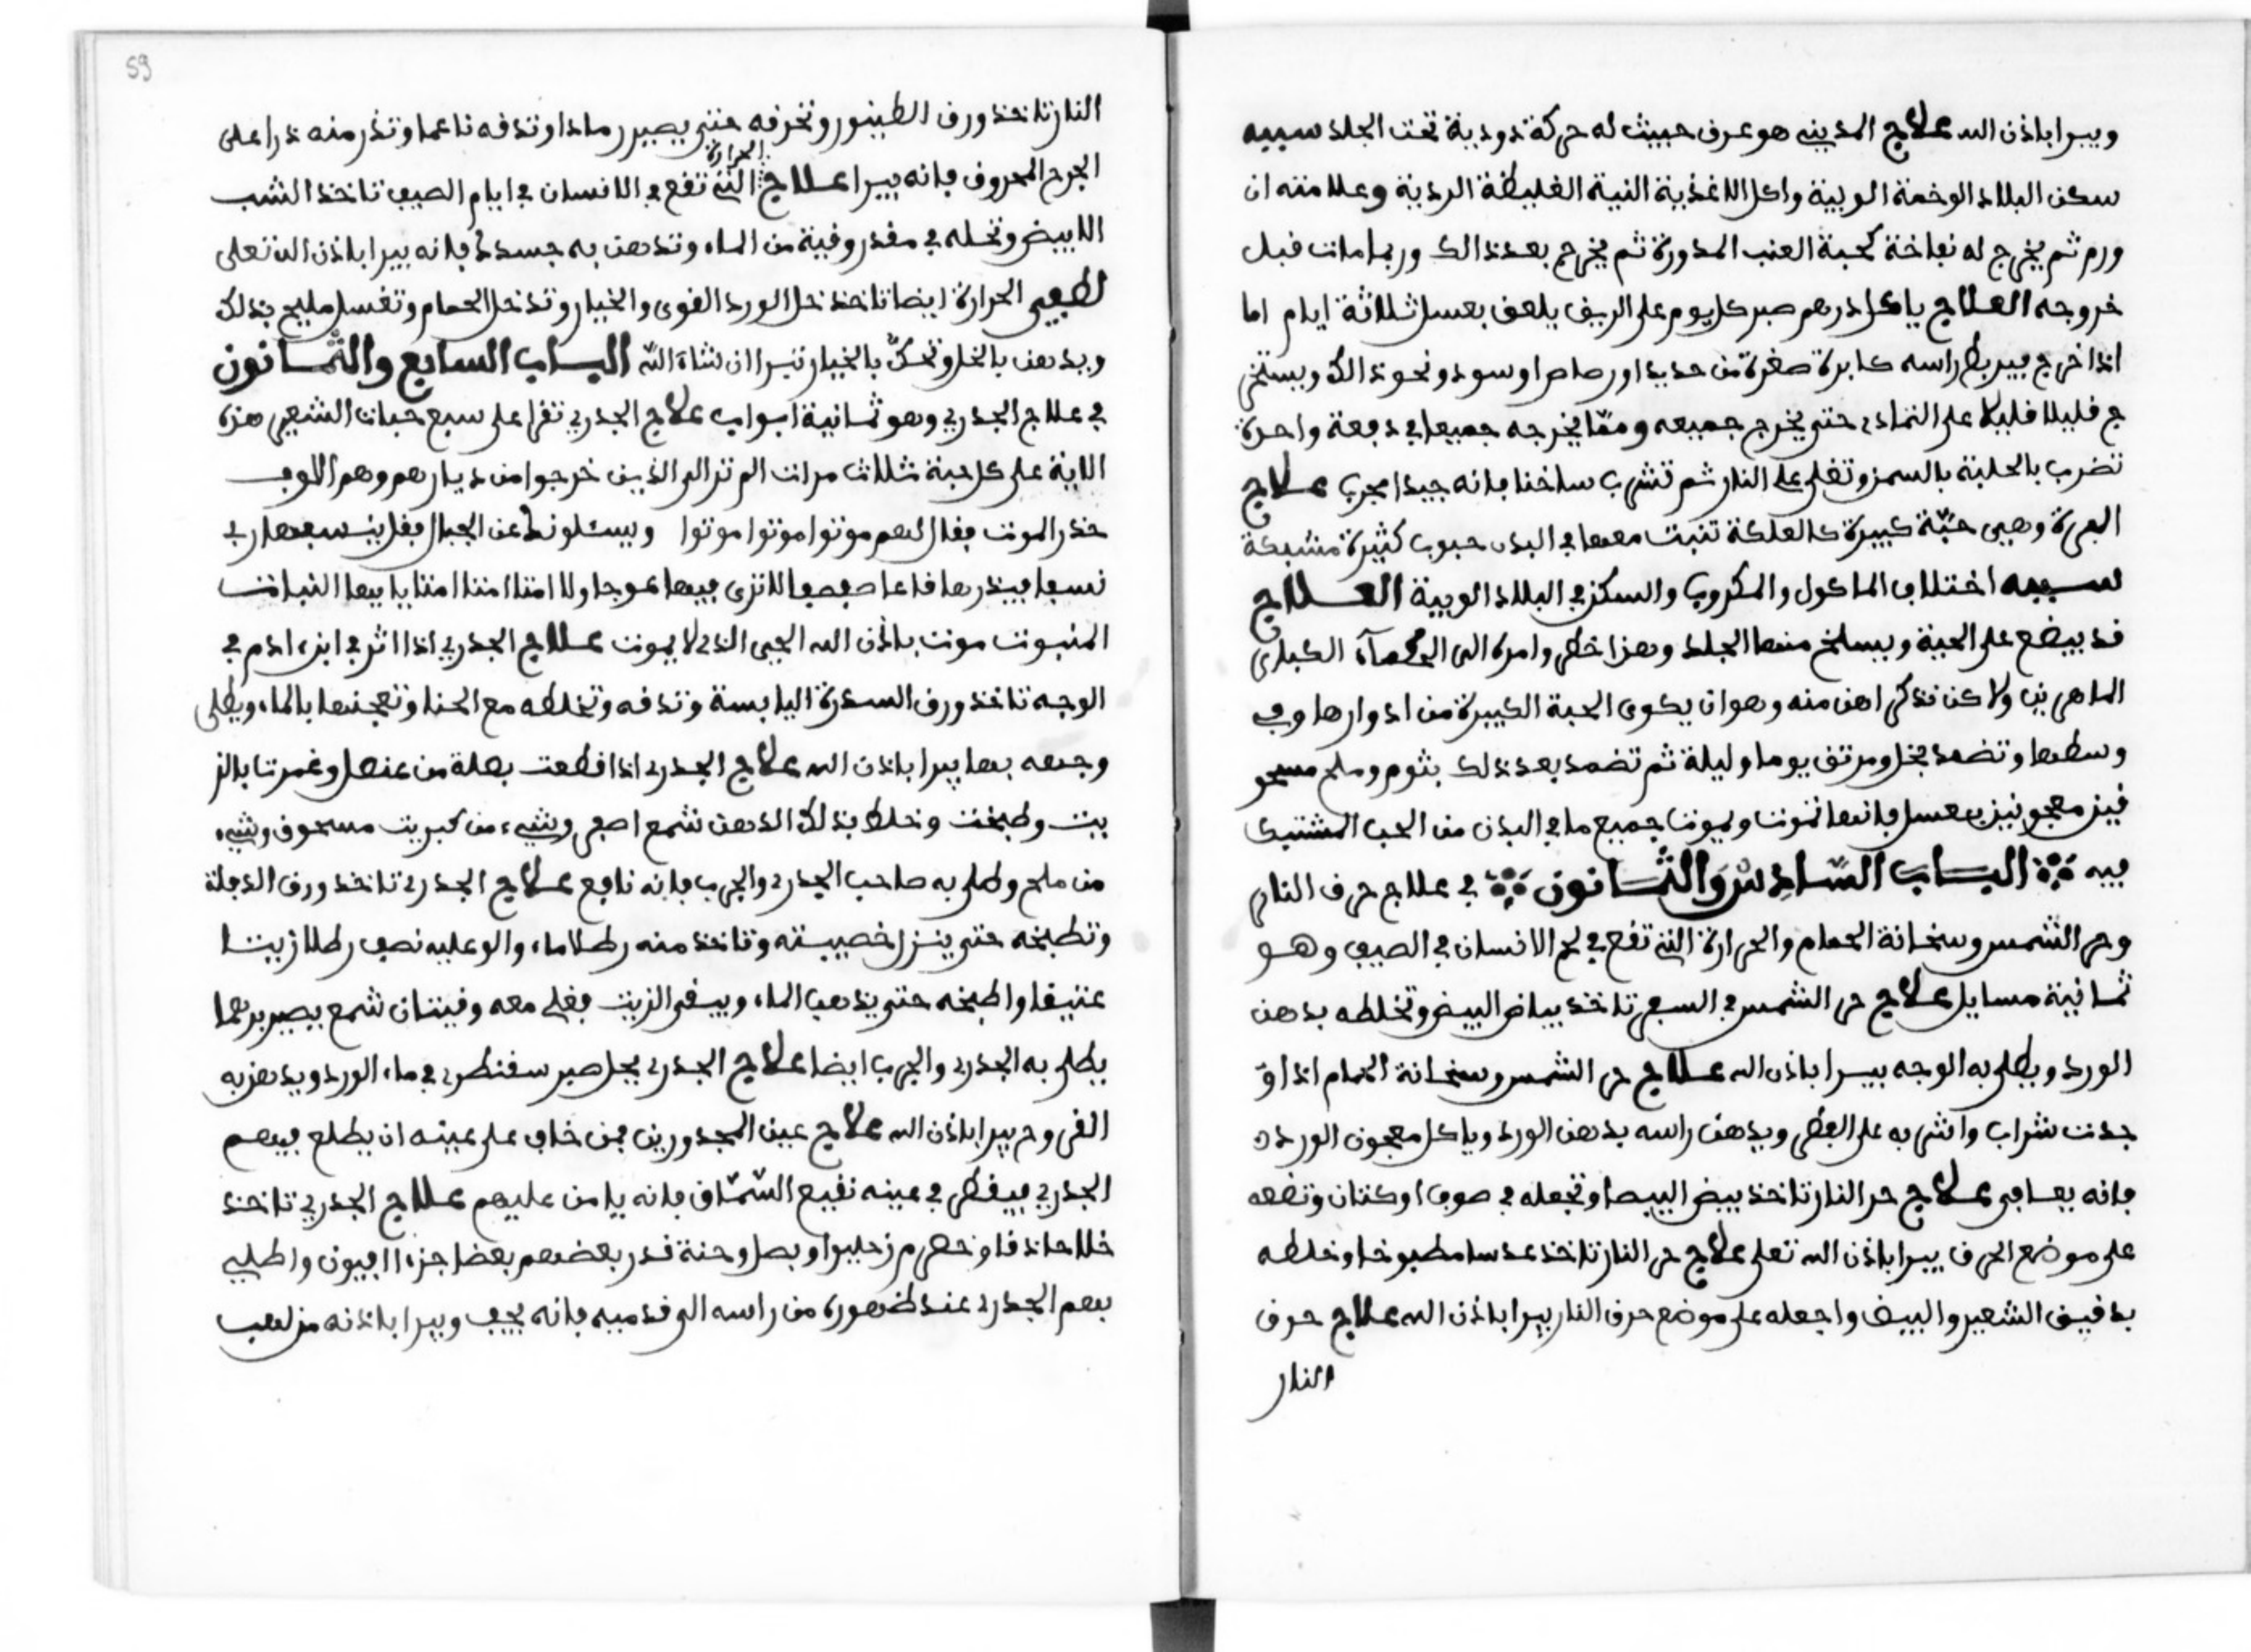 ويبرا باذن الله علاج المديني هو عرق خبيث له حركة دودية تحت الجلد سببه
سكن البلاد الوخمة الوبية واكل الاغذية النية الغليظة الردية وعلامته ان
ورم ثم يخرج له نفاخة كحبة العنب المدورة ثم يخرج بعد ذالك وربما مات قبل
خروجه العلاج ياكل درهم صبر كل يوم على الريق يلعق بعسل ثلاثة ايام اما
اذا خرج راسه كابرة صغرة من حديد اور صاص او سود ونحو ذالك ويستخر
ج قليلا قليلا على التمادى حتى يخرج جميعه ومما يخرجه جميعا في دفعة واحدة
تضرب بالحلبة بالسمن وتغلى على النار ثم تشرب ساخنا فانه جيدا مجرب علاج
وهيى حبة كبيرة كالعلكة تنبت معها في البدن حبوب كثيرة مشبكة
سببه اختلاف الماكول والمكروب والسكن في البلاد الوبية العلاج
قد يبضع على الحبة ويسلخ منها الجلد وهذا خطر وامره الى الحكمآء الكبارى
الماهرين ولاكن نذكر اهن منه وهو ان يكوى الحبة الكبيرة من ادوارها وفي
وسطها وتضمد بخل يوما وليلة ثم تضمد بعد ذلك بثوم وملح مسحو
قين معجونين بعسل فانها تموت ويموت جميع ما في البدن من الحب المشتبك
فيه الباب السادس والثمانون في علاج حرق النار
وحر الشمس وسخانة الحمام والحرارة التي تقع في لحم الانسان في الصيف وهو
ثمانية مسايل علاج حر الشمس في السفر تاخذ بياض البيض وتخلطه بدهن
الورد ويطلى به الوجه يبرا باذن الله علاج حر الشمس وسخانة الحمام اذا او
جدت شراب واشربه على الفطر ويدهن راسه بدهن الورد وياكل معجون الورد
فانه يعافى علاج حر النار تاخذ بيض البيضا وتجعله في صوف او كتان وتضعه
على موضع الحرق يبرا باذن الله تعلى علاج حر النار تاخذ عدسا مطبوخا وخلطه
بدقيق الشعير والبيض واجعله على موضع حرق النار يبرا باذن الله علاج حرق
النار
59
النار تاخذ ورق الطيبور وتحرقه حتى يصير رمادا وتدقه ناعما وتذر منه ذرا على
الجرح المحروق فانه يبرا علاج الحرارة التي تقع في الانسان في ايام الصيف تاخذ الشب
الابيض وتحله في مقدر وقية من الماء وتدهن به جسدك فانه يبرا باذن الله تعلى
لطفى الحرارة ايضا تاخذ خل الورد القوى والخيار وتدخل الحمام وتغسل مليح بذلك
ويدهن بالخل وتحك بالخيار تبرا ان شاء الله الباب السابع والثمانون
في علاج الجدري وهو ثمانية ابواب علاج الجدري تقرا على سبع حبات الشعير هذه
الاية على كل حبة ثلاث مرات الم تر الى الذين خرجوا من ديارهم وهم الوف
حذر الموت فقال لهم موتوا موتوا موتوا ويسئلونك عن الجبال فقل ينسفها ربي
نسفا فيذرها قاعا صفصفا لا ترى فيها عوجا ولا امتا امتا امتا يا ايها النبات
المنبوت موت باذن الله الحيى الذى لا يموت علاج الجدري اذا اثر في ابن ادم في
الوجه تاخذ ورق السدرة اليابسة وتدقه وتخلطه مع الحنا وتعجنها بالماء ويطلى
وجهه بها يبرا باذن الله علاج الجدرى اذا قطعت بصلة من عنصل وغمرتا بالز
يت وطبخت وخلط بذلك الدهن شمع اصفر وشيء من كبريت مسحوق وشيء
من ملح وطلى به صاحب الجدرى والجرب فانه نافع علاج الجدرى تاخذ ورق الدفلة
وتطبخه حتى ينزل خصيبته وتاخذ منه رطلا ماء والو عليه نصف رطلا زيتا
عتيقا واطبخه حتى يذهب الماء ويبقى الزيت فغلى معه وقيتان شمع يصير برهما
يطلى به الجدرى والجرب ايضا علاج الجدرى يحل صبر سقنطرى في ماء الورد ويدهن به
القروح يبرا باذن الله علاج عين المجدورين فمن خاف على عينه ان يطلع فيهم
الجدري فيقطر في عينه نقيع السماق فانه يامن عليهم علاج الجدري تاخذ
خلا حاذقا وبصل وحنة قدر بعضهم بعضا جزءا افيون واطلي
بهم الجدرى عند ظهوره من راسه الى قدميه فانه يجف ويبرا باذنه من لهب